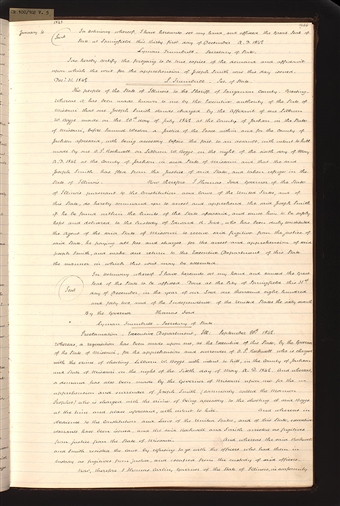 1843
January 4
In testimony whereof, I have hereunto set my hand, and affixed the Great Seal of
Seal
State at Springfield this thirty first day of December A.D. 1842.
Lyman Trumbull, Secretary of State.
I do hereby certify the foregoing to be true copies of the demand and affidavit
upon which the writ for the apprehension of Joseph Smith was this day issued.
Dec. 31, 1842. L. Trumbull, Sec. of State
The people of the State of Illinois to the Sheriff of Sangamon County, Greeting.
Whereas it has been made known to me by the Executive authority of the State of
Missouri that one Joseph Smith stands charged by the Affidavit of one Lilburn
W. Boggs made on the 20th day of July 1842 at the County of Jackson in the State
of Missouri, before Samuel Weston a justice of the Peace within and for the County of
Jackson aforesaid, with being accessary before the fact to an assault with intent to kill
made by one O. P. Rockwell on Lilburn W. Boggs on the night of the sixth day of May
A.D. 1842 at the County of Jackson in said State of Missouri and that the said
Joseph Smith has fled from the justice of said State, and taken refuge in the
State of Illinois. Now therefore I Thomas Ford Governor of the State
of Illinois pursuant to the Constitution and laws of the United States, and of
this State, do hereby command you to arrest and apprehend the said Joseph Smith
if he be found within the limits of the State aforesaid, and cause him to be safely
kept and delivered to the custody of
Agent of the said State of Missouri to receive said fugitive from the justice of
said State, he paying all fees and charges for the arrest and apprehension of said
Joseph Smith, and make due return to the Executive Department of this State
the manner in which this writ may be executed.
In testimony whereof I have hereunto set my hand and caused the Great
Seal
Seal of the State to be affixed. Done at the City of Springfield this 31st
day of December, in the year of our Lord one thousand eight hundred
and forty two and of the Independence of the United States the sixty seventh
By the Governor Thomas Ford
Lyman Trumbull, Secretary of State
Proclamation, Executive Department, Ill. September 20th 1842
Whereas, a requisition has been made upon me, as the Executive of this State, by the Governor
of the State of Missouri, for the apprehension and surrender of O. P. Rockwell, who is charged
with the crime of shooting Lilburn W. Boggs with intent to kill, in the County of Jackson
and State of Missouri on the night of the sixth day of May A.D. 1842. And whereas,
a demand has also been made by the Governor of Missouri upon me for the
apprehension and surrender of Joseph Smith, commonly called the Mormon
Prophet, who is charged with the crime of being accessary to the shooting of said Boggs
at the time and place aforesaid, with intent to kill. And whereas in
obedience to the Constitution and laws of the United States, and of this State, executive
warrants have been issued, and the said Rockwell and Smith arrested as fugitives
from justice from the State of Missouri. And whereas the said Rockwell
and Smith resisted the laws by refusing to go with the officers who had them in
custody as fugitives from justice, and escaped from the custody of said officers.
Now, therefore I Thomas Carlin, Governor of the State of Illinois, in conformity